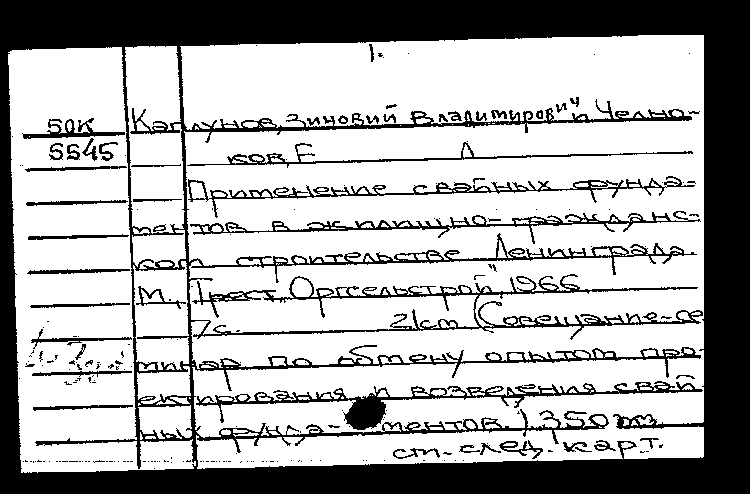 1.
50К Каплунов, Зиновий Владимирович и Челно-
5545 ков, Е Л
Применение свайных фунда-
ментов в жилищно-гражданс-
ком строительстве Ленинграда.
М., Трест „Оргсельстрой", 1966
7с. 21cm (Совещание-се
минар по обмену опытом про-
ектирования и возведения свай
ных фунда- ментов.) 350
ст. след. карт.